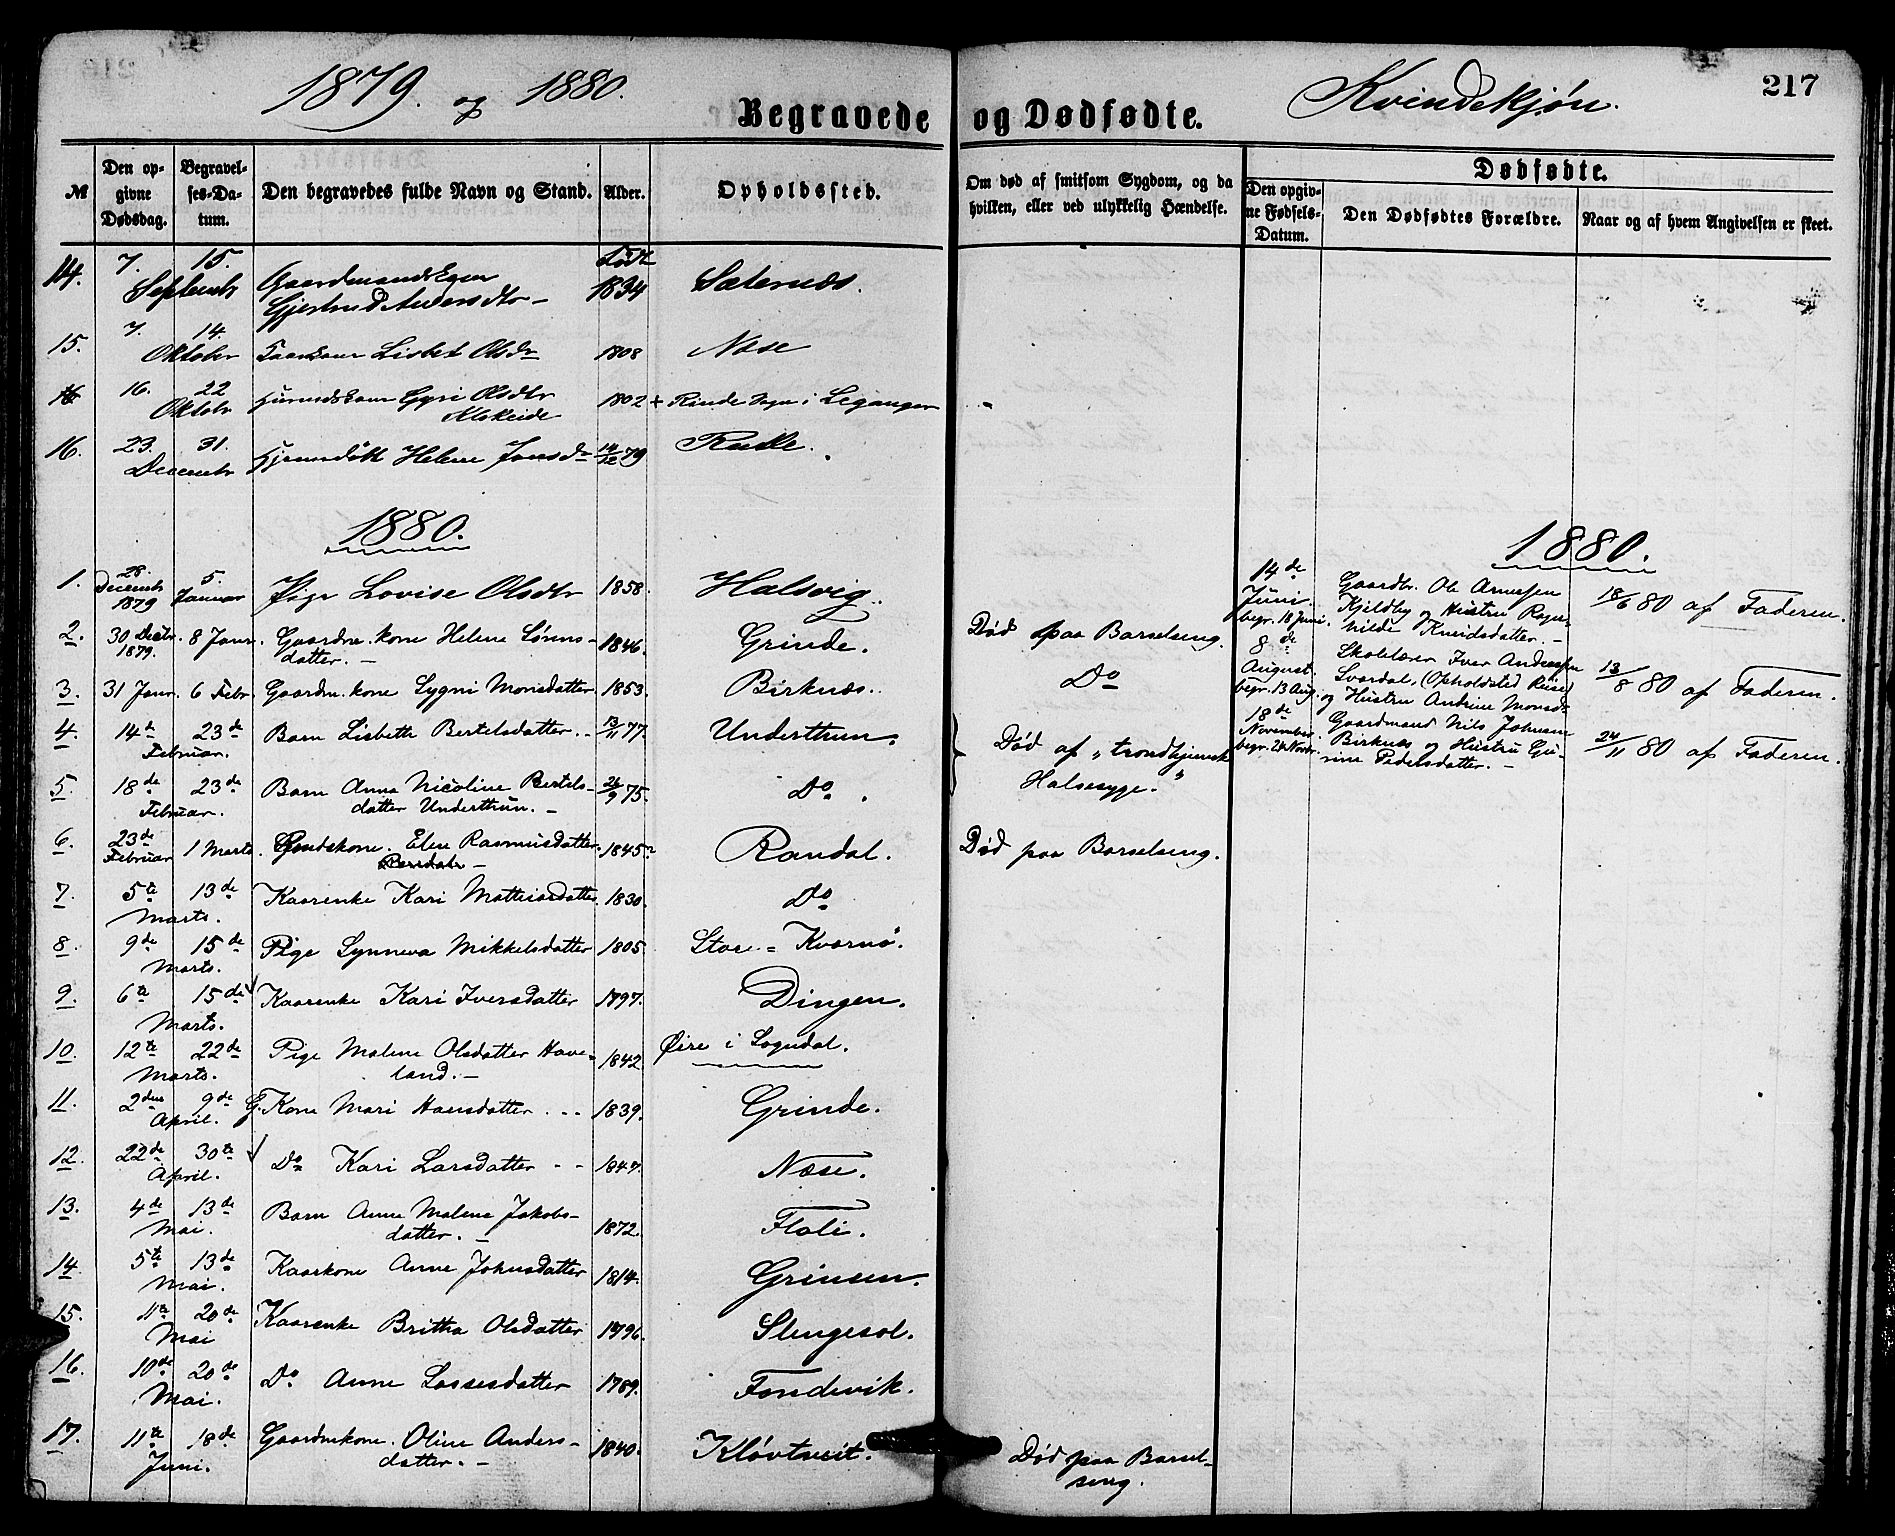 1879. og 1880.
Begravede og Dødfødte.
Kvindekjøn.
217
№
Den opgivne Dødsdag.
Begravelses-Datum.
Den begravedes fulde Navn og Stand.
Alder.
Opholdssted.
Om død af smitsom Sygdom, og da hvilken, eller ved ulykkelig Hændelse.
Dødfødte.
Den opgivne Fødsels-Datum.
Den Dødfødtes Forældre.
Naar og af hvem Angivelsen er skeet.
14. 7. 15. Septembr født 1834
15. 7. 14. Oktobr Lisbet Olsdr 1808 Nese
16 16. 22 Oktobr Gyri Olsdtr 1802 + Rinde Sogn i Leganger
16. 23. 31. Decembr Helene Jonsdr 14/12 79
1880.
1. 28. Decembr 1879 5. Januar Pige Lovise Olsdtr 1858. Halsvig.
2. 30 Decbr. 1879. 8 Janr. Gaardm. kone Helene Sønns-
datter. — 1846. Grinde. Død paa Barselseng.
3. 31 Janr. 6 Febr. Gaardm. kone Sygni Monsdatter 1853. Birknæs. Do
4. 14de 23de Februar. Barn Lisbeth Bertelsdatter. 13/11 77. Underthun.
Død af „trondhjemsk
Halsesyge."
5. 18de 23de Februar. Barn Anna Nicoline Bertels-
datter Underthun. — 26/9 75. Do.
6. 23de Februar 1 Marts. Elen Rasmusdatter 1845 Randal. Død paa Barselseng.
7. 5te 13de Marts. Kaarenke Kari Mathiasdatter 1830. Do
8. 9de 15de Marts. Pige Synneva Mikkelsdatter 1805. Store-Kvernø.
9. 6te 15de Marts. Kaarenke Kari Iversdatter 1797. Dingen.
10. 12te 22de Marts. Pige Malene Olsdatter Have-
land. — 1842 Øire i Sogndal.
11. 2den 9de April. G. Kone Mari Hansdatter 1839. Grinde.
12. 22de 30te April. Do Kari Larsdatter 1847. Nese.
13. 4de 13de Mai. Barn Anne Malene Jakobs-
datter. — 1872. Floli.
14. 5te 13de Mai. Kaarkone Anne Johnsdatter 1814. Grinsen.
15. 11te 20de Mai Kaarenke Britha Olsdatter 1796. Slengesol.
16. 10de 20de Mai. Do Anne Lassesdatter 1789. Fondevik.
17. 11te 18de Juni. Gaardmkone. Oline Anders-
datter. — 1840. Kløvtveit. Død paa Barsel-
seng.
1880.
14de Juni. begr. 18 Juni. Gaardbr. Ole Arnesen
Kjeldby og Hustru Ragn-
hilde Knudsdatter. — 18/6 80 af Faderen.
8de August. begr. 13 Aug. Skolelærer Iver Andersen
Svardal, (Opholdsted Riise)
og Hustru Andrine Monsd. 13/8 80 af Faderen.
18de November. begr. 24 Novbr. Gaardmand Nils Johnsen
Birknæs og Hustru Gu-
rine Pedersdatter. — 24/11 80 af Faderen.